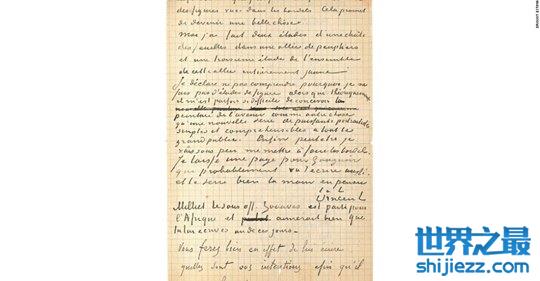 des figures vues dans les bordels. Cela promet
de devenir une belle chose.
Moi j'ai fait deux études d'une chute
des feuilles dans une allée de peupliers
et une troisième étude de l'ensemble
de cette allée entièrement jaune.
Je déclare ne pas comprendre pourquoi je ne
fais pas d'études de figure alors que théoriquement
il m'est parfois si difficile de concevoir la
peinture de l'avenir comme autre chose
qu'une nouvelle série de puissants portraitistes
simples et compréhensibles à tout le
grand public. Enfin peutetre je
vais sous peu me mettre à faire les bordels.
Je laisse une page pour Gauguin
qui probablement va t'écrire aussi
et te serre bien la main en pensée
t. à t.
Vincent
Milliet le sous off. Zouaves est parti pour
l'Afrique et aimerait bien que
tu lui écrives un de ces jours.-
Vous ferez bien en effet de lui écrire
quelles sont vos intentions afin qu'il
世界之最
shijiezz.com